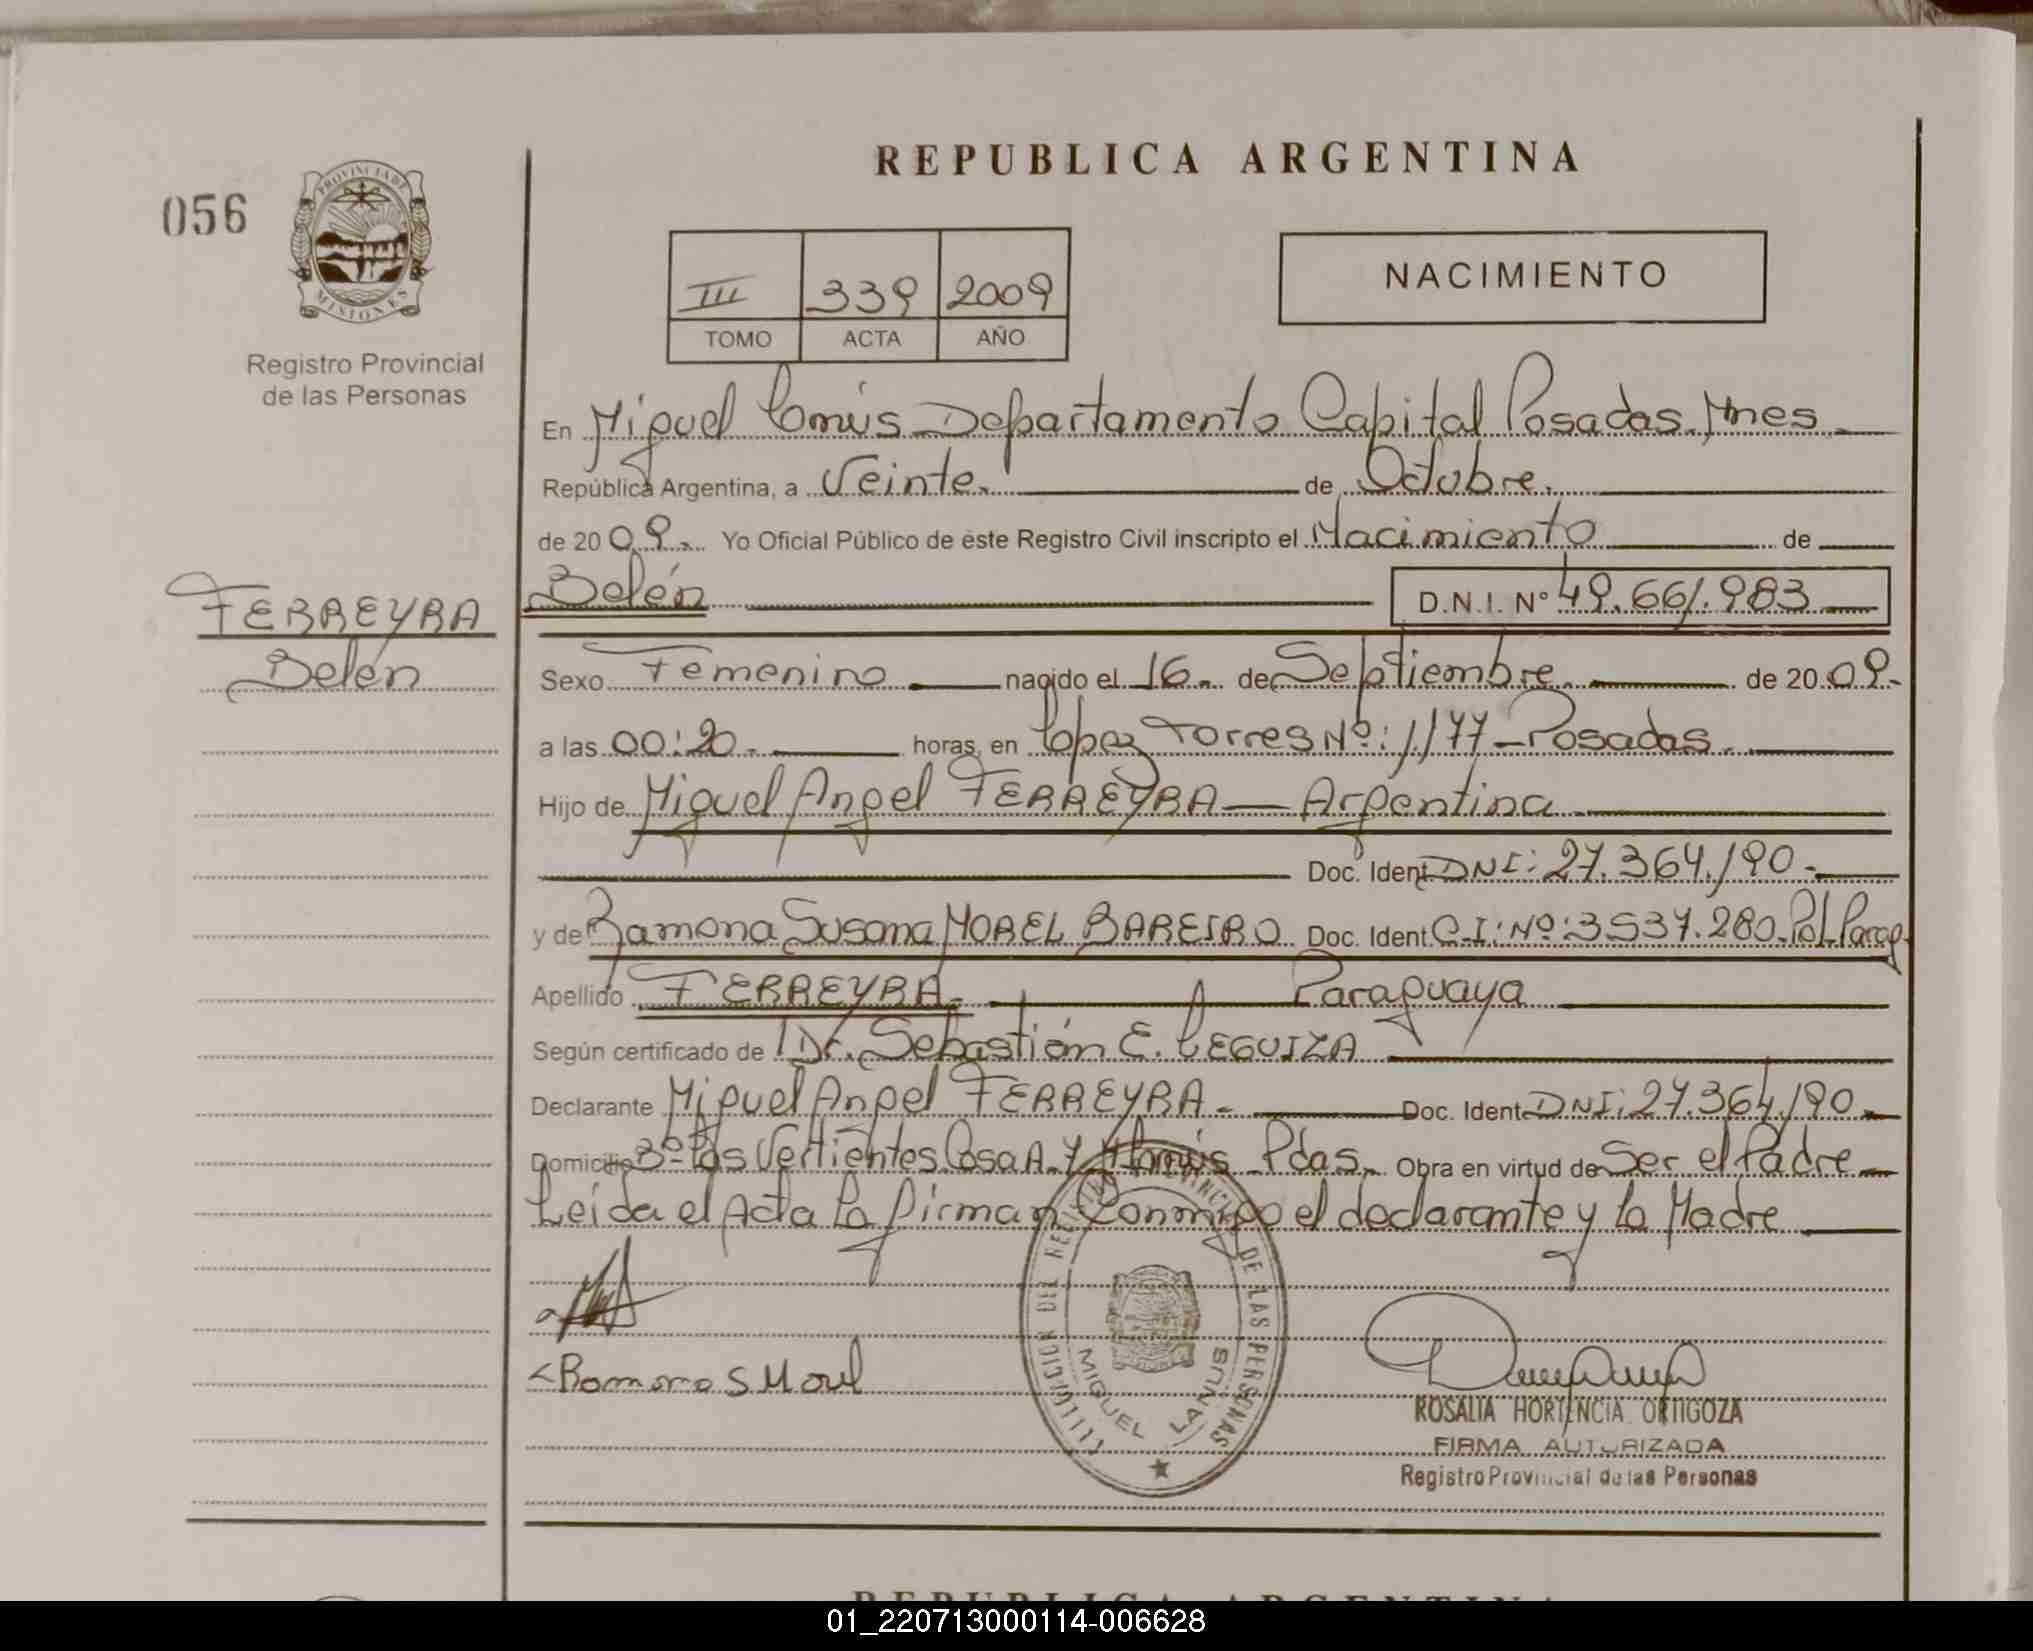 REPUBLICA ARGENTINA
056
PROVINCIA DE MISIONES
Registro Provincial
de las Personas
III 339 2009
TOMO ACTA AÑO
NACIMIENTO
En Miguel Lanús Departamento Capital Posadas. Mnes
República Argentina, a Veinte. de Octubre.
de 20 09. Yo Oficial Público de este Registro Civil inscripto el Nacimiento de
Belén D.N.I. N° 49.661.983
FERREYRA
Belén
Sexo Femenino nacido el 16. de Septiembre. de 20 09.
a las 00:20. horas, en López Torres Nº: 1177 - Posadas.
Hijo de Miguel Angel FERREYRA — Argentina
Doc. Ident. DNI: 27.364.190.
y de Ramona Susana MOREL BAREIRO Doc. Ident. C.I: Nº: 3537.280. Pol. Parag.
Apellido FERREYRA. Paraguaya
Según certificado de Dr. Sebastián E. LEGUIZA
Declarante Miguel Angel FERREYRA. Doc. Ident. DNI: 27.364.190.
Domicilio Bº Las Vertientes Casa A. Y Lanús Pdas. Obra en virtud de Ser el Padre
Leida el Acta La firman Conmigo el declarante y la Madre
Ramona S Morel
DE LAS PERSONAS
MIGUEL LANUS
ROSALIA HORTENCIA ORTIGOZA
FIRMA AUTORIZADA
Registro Provincial de las Personas
REPUBLICA ARGENTINA
01_220713000114-006628